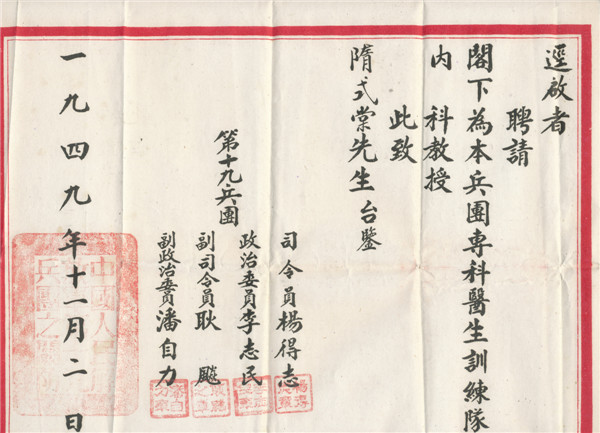 逕啟者
聘請
閣下為本兵團專科醫生訓練隊
內科教授
此致
隋式棠先生台鑒
第十九兵團
司令員楊得志
政治委員李志民
副司令員耿飈
副政治委員潘自力
一九四九年十一月二日